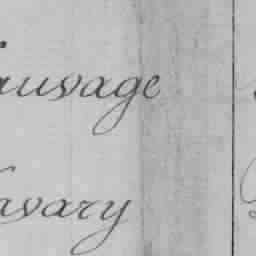 auvage
avary